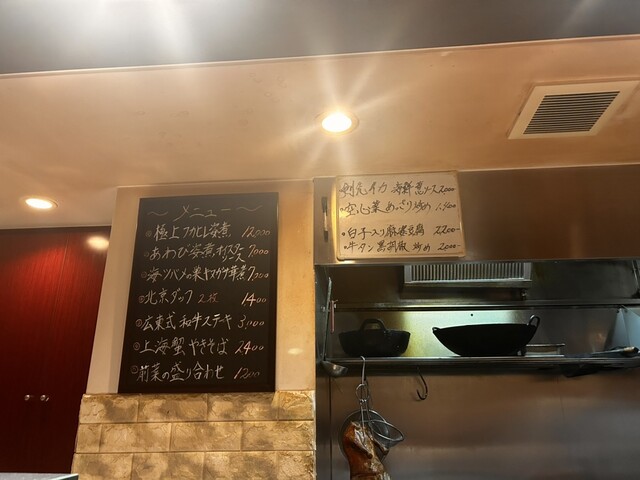 〜メニュー〜
極上フカヒレ姿煮 12,000
あわび姿煮 オイスターソース 7,000
海ツバメの巣 7,300
北京ダック 2枚 1400
広東式 和牛ステーキ 3,000
上海蟹 やきそば 2400
前菜の盛り合わせ 1200
剣先イカ 海鮮葱ソース 2,000
・空心菜 あっさり炒め 1,400
・白子入り麻婆豆腐 2200
・牛タン 黒胡椒 炒め 2000